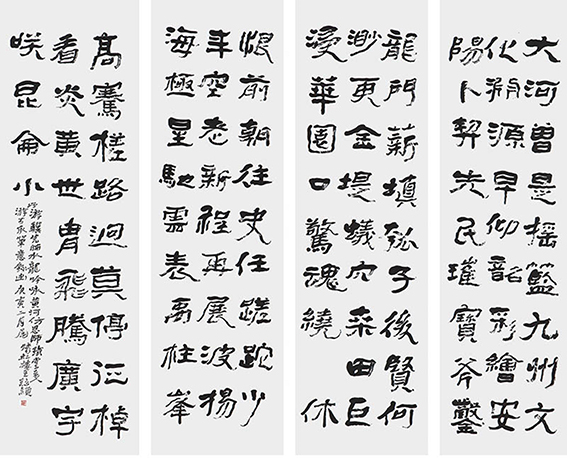 大河曾是搖籃九州文
化溯源早仰韶彩繪安
陽卜契先民璀寶斧鑿
龍門薪填瓠子後賢何
渺更金堤蟻穴桑田巨
浸華園口驚魂繞休
恨前朝往史任蹉跎少
年空老新程再展波揚
海極星馳雲表禹柱峯
高騫槎路迥莫停征棹
看炎黃世冑飛騰廣宇
咲昆侖小
水龍吟咏黃河
庚寅二月